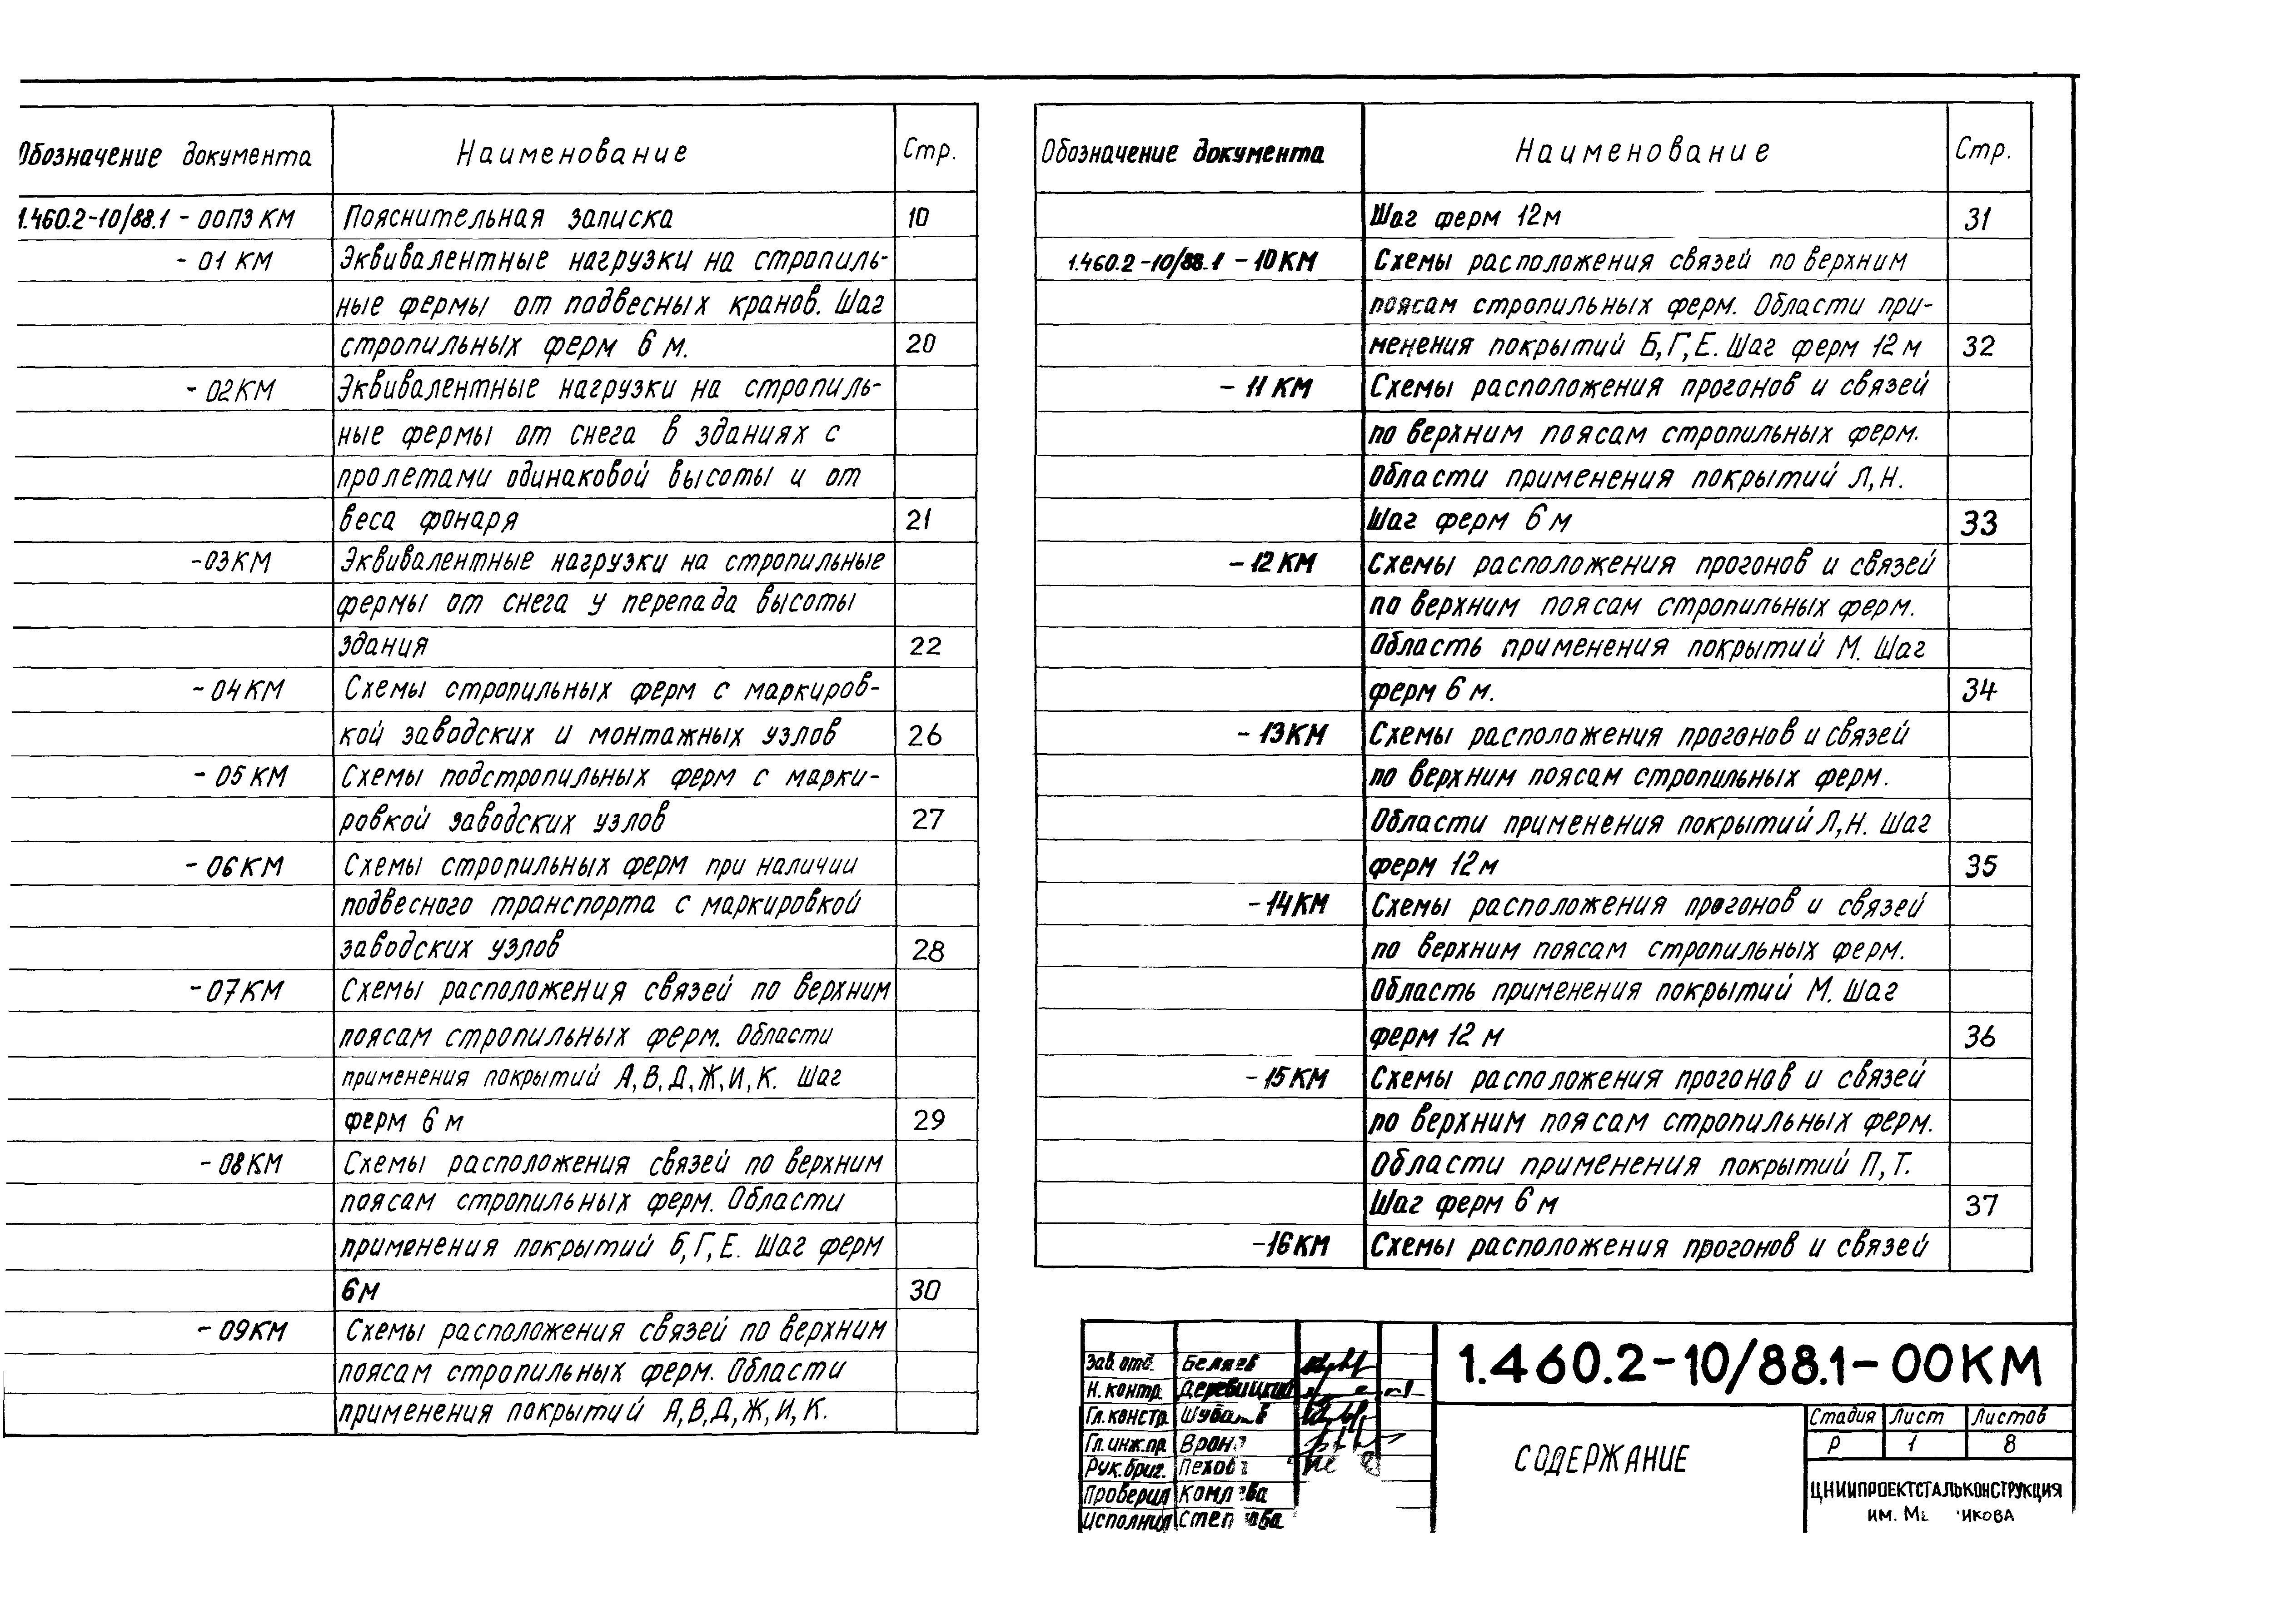 Обозначение документа Наименование Стр.
1.460.2-10/88.1 - 00ПЗ КМ Пояснительная записка 10
- 01 КМ Эквивалентные нагрузки на стропиль-
ные фермы от подвесных кранов. Шаг
стропильных ферм 6 м. 20
- 02КМ Эквивалентные нагрузки на стропиль-
ные фермы от снега в зданиях с
пролетами одинаковой высоты и от
веса фонаря 21
-03КМ Эквивалентные нагрузки на стропильные
фермы от снега у перепада высоты
здания 22
- 04КМ Схемы стропильных ферм с маркиров-
кой заводских и монтажных узлов 26
- 05 КМ Схемы подстропильных ферм с марки-
ровкой заводских узлов 27
- 06КМ Схемы стропильных ферм при наличии
подвесного транспорта с маркировкой
заводских узлов 28
- 07КМ Схемы расположения связей по верхним
поясам стропильных ферм. Области
применения покрытий А,В,Д,Ж,И,К. Шаг
ферм 6 м 29
- 08КМ Схемы расположения связей по верхним
поясам стропильных ферм. Области
применения покрытий Б,Г,Е. Шаг ферм
6м 30
- 09КМ Схемы расположения связей по верхним
поясам стропильных ферм. Области
применения покрытий А,В,Д,Ж,И,К.
Обозначение документа Наименование Стр.
Шаг ферм 12м 31
1.460.2-10/88.1 - 10КМ Схемы расположения связей по верхним
поясам стропильных ферм. Области при-
менения покрытий Б,Г,Е. Шаг ферм 12 м 32
- 11 КМ Схемы расположения прогонов и связей
по верхним поясам стропильных ферм.
Области применения покрытий Л,Н.
Шаг ферм 6 м 33
- 12КМ Схемы расположения прогонов и связей
по верхним поясам стропильных ферм.
Область применения покрытий М. Шаг
ферм 6 м. 34
- 13КМ Схемы расположения прогонов и связей
по верхним поясам стропильных ферм.
Области применения покрытий Л,Н. Шаг
ферм 12м 35
- 14КМ Схемы расположения прогонов и связей
по верхним поясам стропильных ферм.
Область применения покрытий М. Шаг
ферм 12 м 36
- 15КМ Схемы расположения прогонов и связей
по верхним поясам стропильных ферм.
Области применения покрытий П,Т.
Шаг ферм 6 м 37
-16КМ Схемы расположения прогонов и связей
Зав. отд. Беляев
Н. контр. Деревицкий
Гл. констр.
Гл. инж. пр.
Рук. бриг.
Проверил
Исполнил
1.460.2-10/88.1-00КМ
СОДЕРЖАНИЕ
Стадия Лист Листов
Р 1 8
ЦНИИПРОЕКТСТАЛЬКОНСТРУКЦИЯ
ИМ.